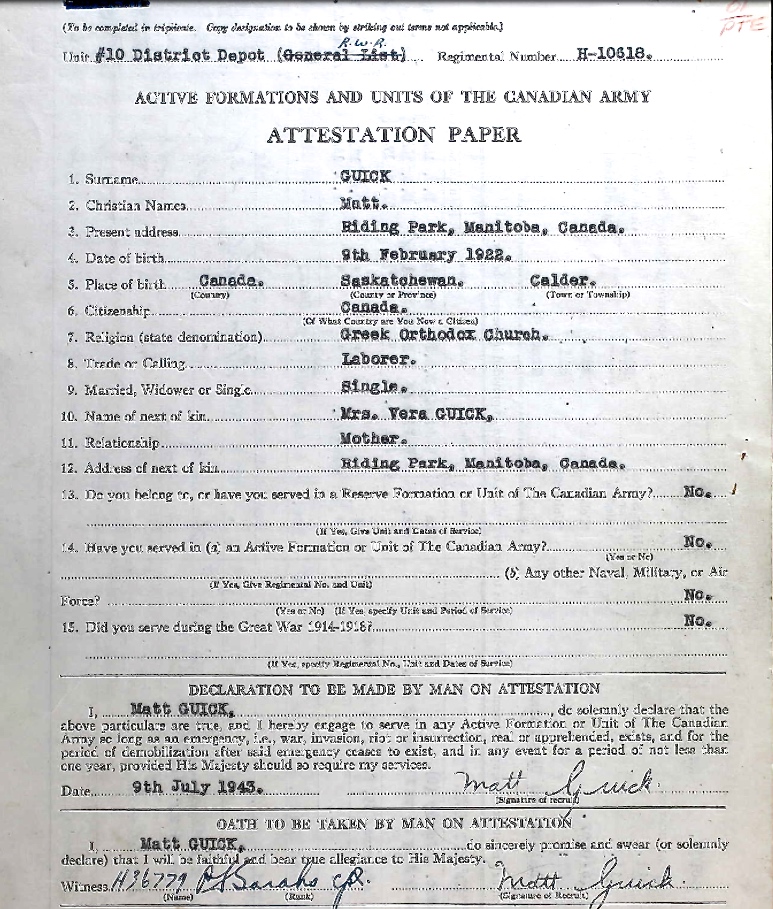 PTE
(To be completed in triplicate. Copy designation to be shown by striking out terms not applicable.)
R.W.R.
Unit #10 District Depot (General List) Regimental Number H-10618.
ACTIVE FORMATIONS AND UNITS OF THE CANADIAN ARMY
ATTESTATION PAPER
1. Surname GUICK
2. Christian Names Matt.
3. Present address Riding Park, Manitoba, Canada.
4. Date of birth 9th February 1922.
5. Place of birth Canada. Saskatchewan. Calder.
(Country) (County or Province) (Town or Township)
6. Citizenship Canada.
(Of What Country are You Now a Citizen)
7. Religion (state denomination) Greek Orthodox Church.
8. Trade or Calling Laborer.
9. Married, Widower or Single Single.
10. Name of next of kin Mrs. Vera GUICK,
11. Relationship Mother.
12. Address of next of kin Riding Park, Manitoba, Canada.
13. Do you belong to, or have you served in a Reserve Formation or Unit of The Canadian Army? No.
(If Yes, Give Unit and Dates of Service)
14. Have you served in (a) an Active Formation or Unit of The Canadian Army? No.
(Yes or No)
(b) Any other Naval, Military, or Air
(If Yes, Give Regimental No. and Unit)
Force? No.
(Yes or No) (If Yes, specify Unit and Period of Service)
15. Did you serve during the Great War 1914-1918? No.
(If Yes, specify Regimental No., Unit and Dates of Service)
DECLARATION TO BE MADE BY MAN ON ATTESTATION
I, Matt GUICK, do solemnly declare that the
above particulars are true, and I hereby engage to serve in any Active Formation or Unit of The Canadian
Army so long as an emergency, i.e., war, invasion, riot or insurrection, real or apprehended, exists, and for the
period of demobilization after said emergency ceases to exist, and in any event for a period of not less than
one year, provided His Majesty should so require my services.
Date 9th July 1943. Matt Guick.
(Signature of recruit)
OATH TO BE TAKEN BY MAN ON ATTESTATION
I, Matt GUICK, do sincerely promise and swear (or solemnly
declare) that I will be faithful and bear true allegiance to His Majesty.
Witness H36779 Matt Guick.
(Name) (Rank) (Signature of Recruit)